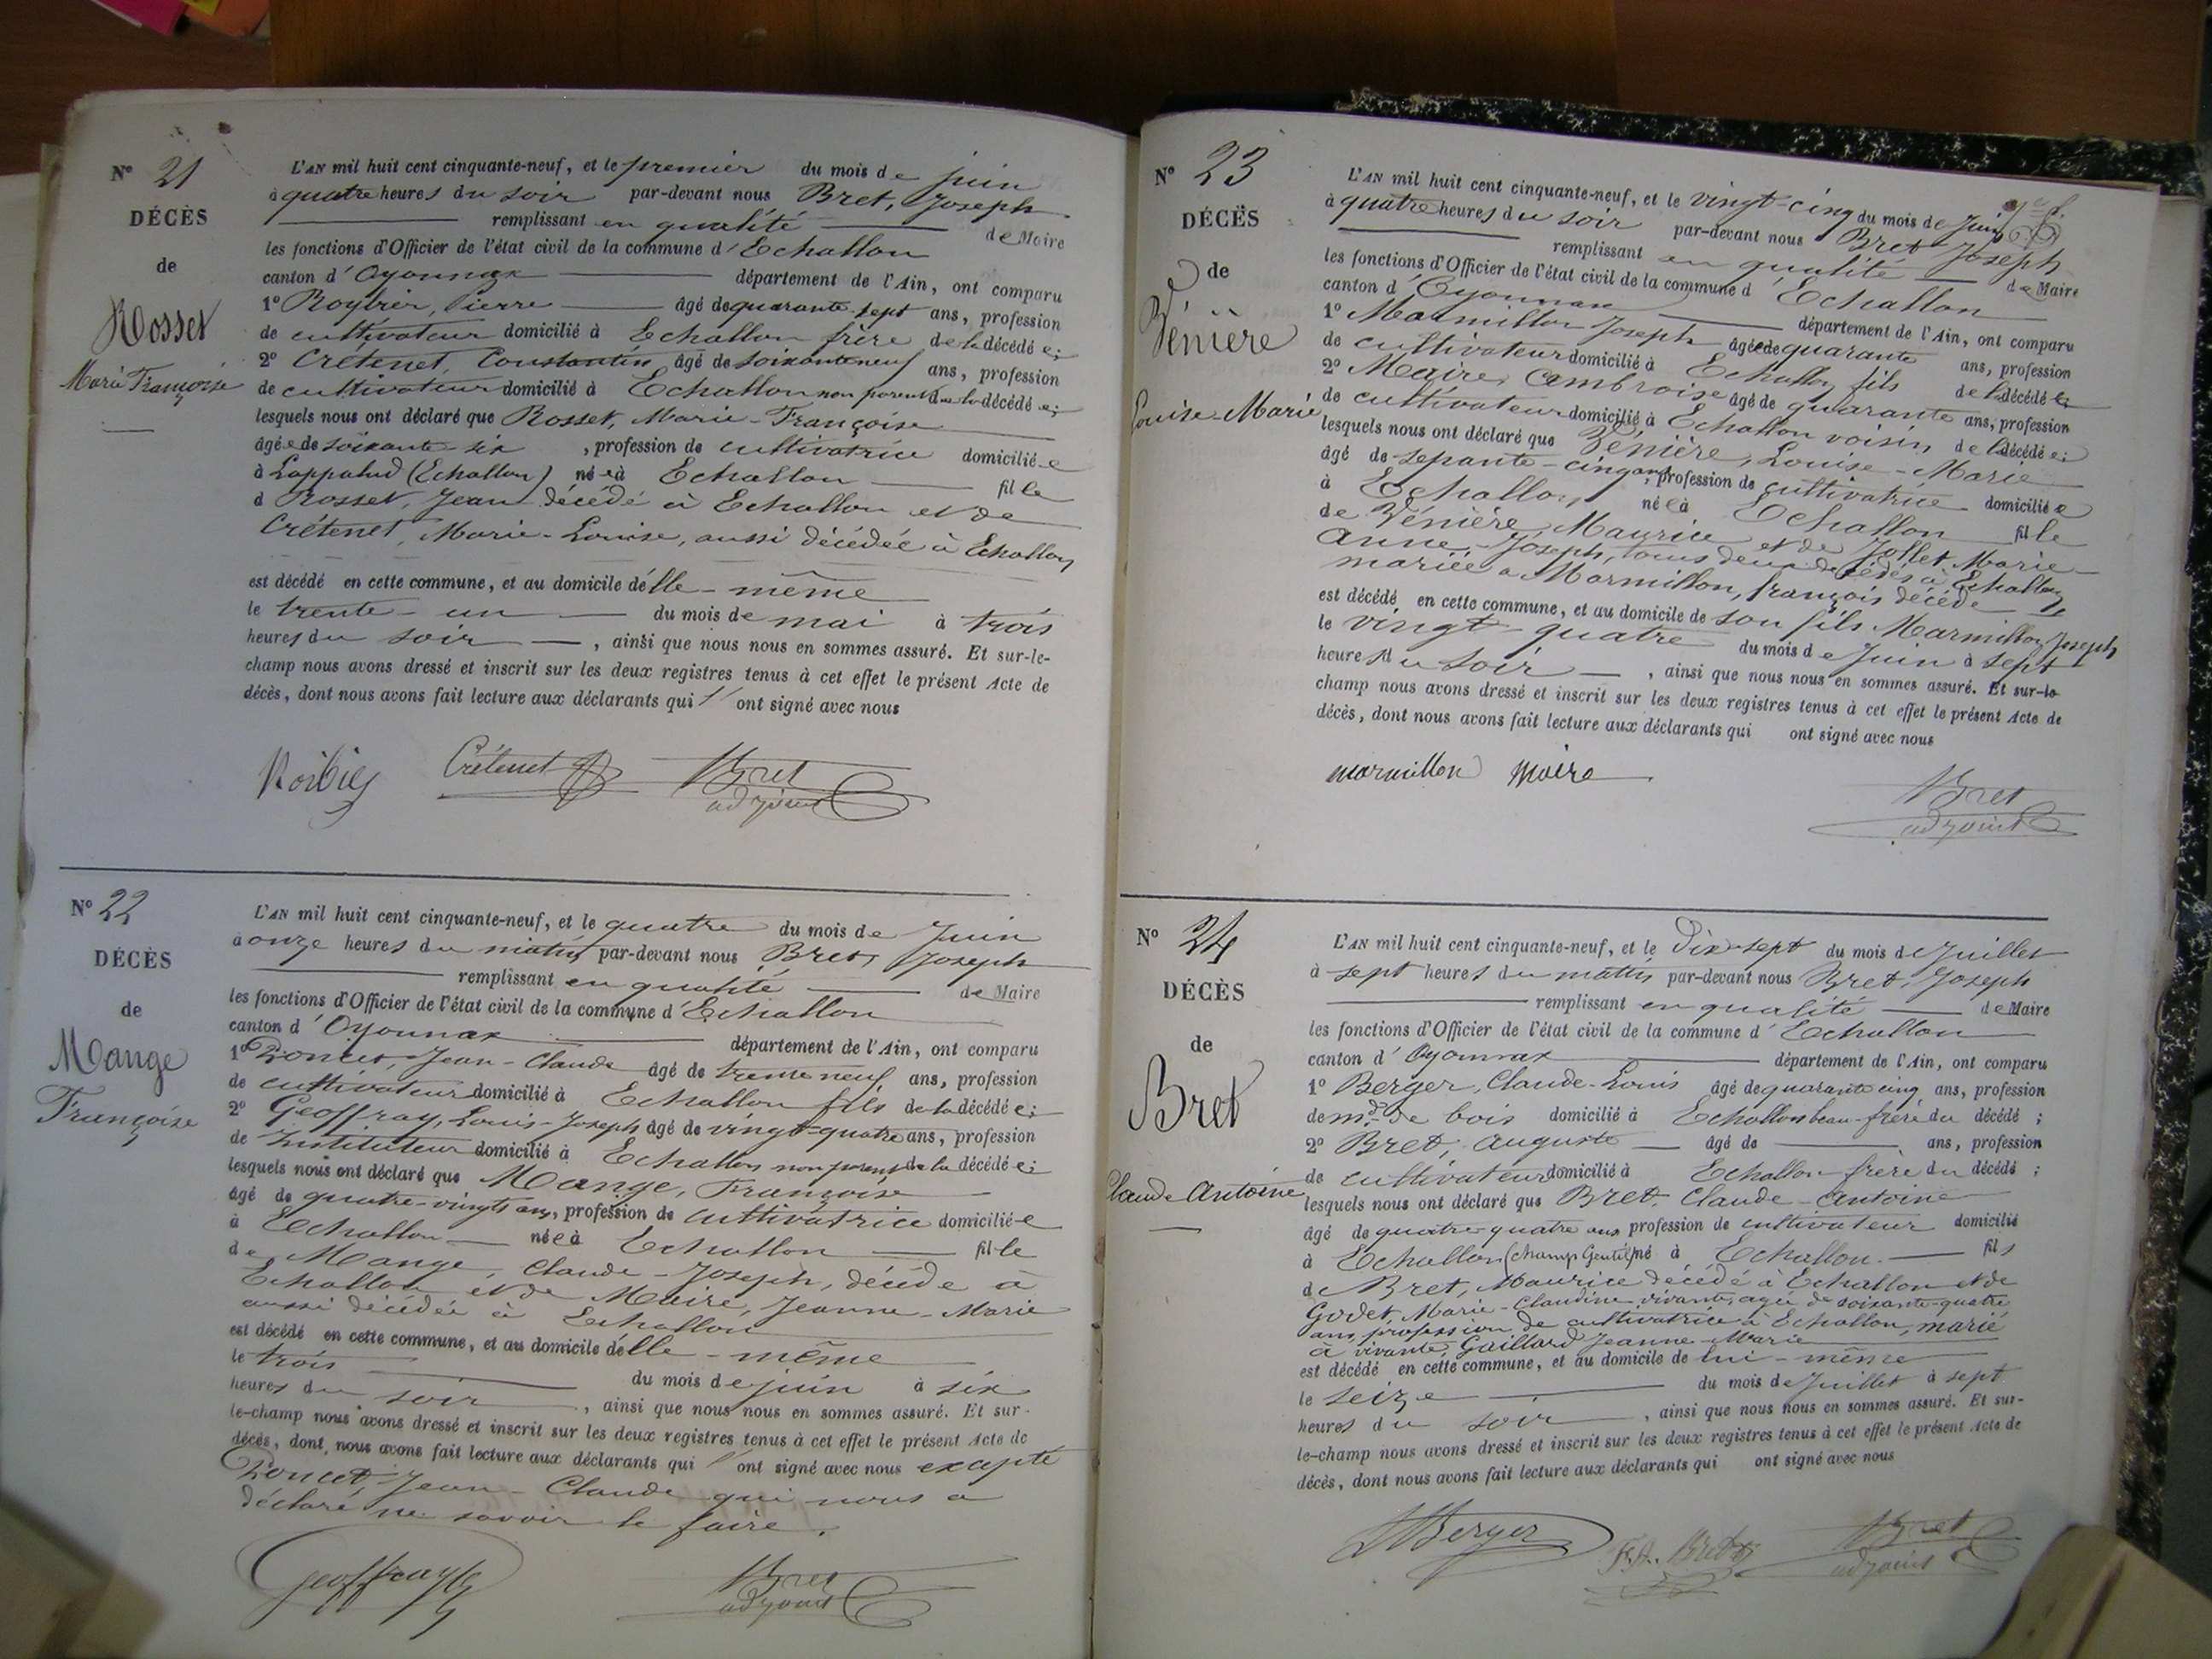 N° 21
DÉCÈS
de
Rosset
Marie Françoise
L'AN mil huit cent cinquante-neuf, et le premier du mois de juin
à quatre heures du soir par-devant nous Bret, Joseph
remplissant en qualité de Maire
les fonctions d'Officier de l'état civil de la commune d'Echallon
canton d'Oyonnax département de l'Ain, ont comparu
1° Roybier, Pierre âgé de quarante-sept ans, profession
de cultivateur domicilié à Echallon frère de la décédée;
2° Crétenet, Constantin âgé de soixante neuf ans, profession
de cultivateur domicilié à Echallon non parent de la décédée;
lesquels nous ont déclaré que Rosset, Marie-Françoise
âgée de soixante-six, profession de cultivatrice domiciliée
à Lappalud (Echallon) née à Echallon fille
d Rosset, Jean décédé à Echallon et de
Crétenet, Marie-Louise, aussi décédée à Echallon
est décédé en cette commune, et au domicile d'elle-même
le trente-un du mois de mai à trois
heures du soir, ainsi que nous nous en sommes assuré. Et sur-le-
champ nous avons dressé et inscrit sur les deux registres tenus à cet effet le présent Acte de
décès, dont nous avons fait lecture aux déclarants qui l' ont signé avec nous
Crétenet Bret
adjoint
N° 22
DÉCÈS
de
Mange
Françoise
L'AN mil huit cent cinquante-neuf, et le quatre du mois de Juin
à onze heures du matin par-devant nous Bret, Joseph
remplissant en qualité de Maire
les fonctions d'Officier de l'état civil de la commune d'Echallon
canton d'Oyonnax département de l'Ain, ont comparu
1° Poncet, Jean-Claude âgé de trente neuf ans, profession
de cultivateur domicilié à Echallon fils de la décédée;
2° Geoffray, Louis-Joseph âgé de vingt-quatre ans, profession
de Instituteur domicilié à Echallon non parent de la décédée;
lesquels nous ont déclaré que Mange, Françoise
âgé de quatre-vingts ans, profession de cultivatrice domiciliée
à Echallon née à Echallon fille
de Mange, Claude-Joseph, décédé à
Echallon et de Maire, Jeanne-Marie
aussi décédée à Echallon
est décédé en cette commune, et au domicile d'elle-même
le trois du mois de juin à six
heures du soir, ainsi que nous nous en sommes assuré. Et sur-
le-champ nous avons dressé et inscrit sur les deux registres tenus à cet effet le présent Acte de
décès, dont nous avons fait lecture aux déclarants qui l' ont signé avec nous excepté
Poncet Jean-Claude qui nous a
déclaré ne savoir le faire.
Geoffray Bret
adjoint
N° 23
DÉCÈS
de
Vénière
Louise-Marie
L'AN mil huit cent cinquante-neuf, et le vingt-cinq du mois de Juin
à quatre heures du soir par-devant nous Bret Joseph
remplissant en qualité de Maire
les fonctions d'Officier de l'état civil de la commune d Echallon
canton d'Oyonnax département de l'Ain, ont comparu
1° Marmillon Joseph âgé de quarante ans, profession
de cultivateur domicilié à Echallon fils de la décédée
2° Maire, Ambroise âgé de quarante ans, profession
de cultivateur domicilié à Echallon voisin de la décédée;
lesquels nous ont déclaré que Vénière, Louise-Marie
âgé de septante-cinq ans, profession de cultivatrice domiciliée
à Echallon née à Echallon fille
de Vénière, Maurice et de Jollet Marie-
Anne-Joseph, tous deux décédés à Echallon
mariée à Marmillon, françois décédé
est décédé en cette commune, et au domicile de son fils Marmillon Joseph
le vingt-quatre du mois de Juin à sept
heures du soir, ainsi que nous nous en sommes assuré. Et sur-le
champ nous avons dressé et inscrit sur les deux registres tenus à cet effet le présent Acte de
décès, dont nous avons fait lecture aux déclarants qui ont signé avec nous
marmillon Maire
Bret
adjoint
N° 24
DÉCÈS
de
Bret
Claude Antoine
L'AN mil huit cent cinquante-neuf, et le Dix-sept du mois de Juillet
à sept heures du matin par-devant nous Bret, Joseph
remplissant en qualité de Maire
les fonctions d'Officier de l'état civil de la commune d'Echallon
canton d'Oyonnax département de l'Ain, ont comparu
1° Berger, Claude-Louis âgé de quarante cinq ans, profession
de md de bois domicilié à Echallon beau-frère du décédé;
2° Bret, Auguste âgé de ans, profession
de cultivateur domicilié à Echallon frère du décédé;
lesquels nous ont déclaré que Bret, Claude-Antoine
âgé de quatre-quatre ans profession de cultivateur domicilié
à Echallon (Champ Gentil) né à Echallon fils
de Bret, Maurice décédé à Echallon et de
Godet, Marie-Claudine vivante, agée de soixante-quatre
ans, profession de cultivatrice à Echallon, marié
à vivante Gaillard Jeanne-Marie
est décédé en cette commune, et au domicile de lui-même
le seize du mois de Juillet à sept
heures du soir, ainsi que nous nous en sommes assuré. Et sur-
le-champ nous avons dressé et inscrit sur les deux registres tenus à cet effet le présent Acte de
décès, dont nous avons fait lecture aux déclarants qui ont signé avec nous
Berger F.A. Bret Bret
adjoint